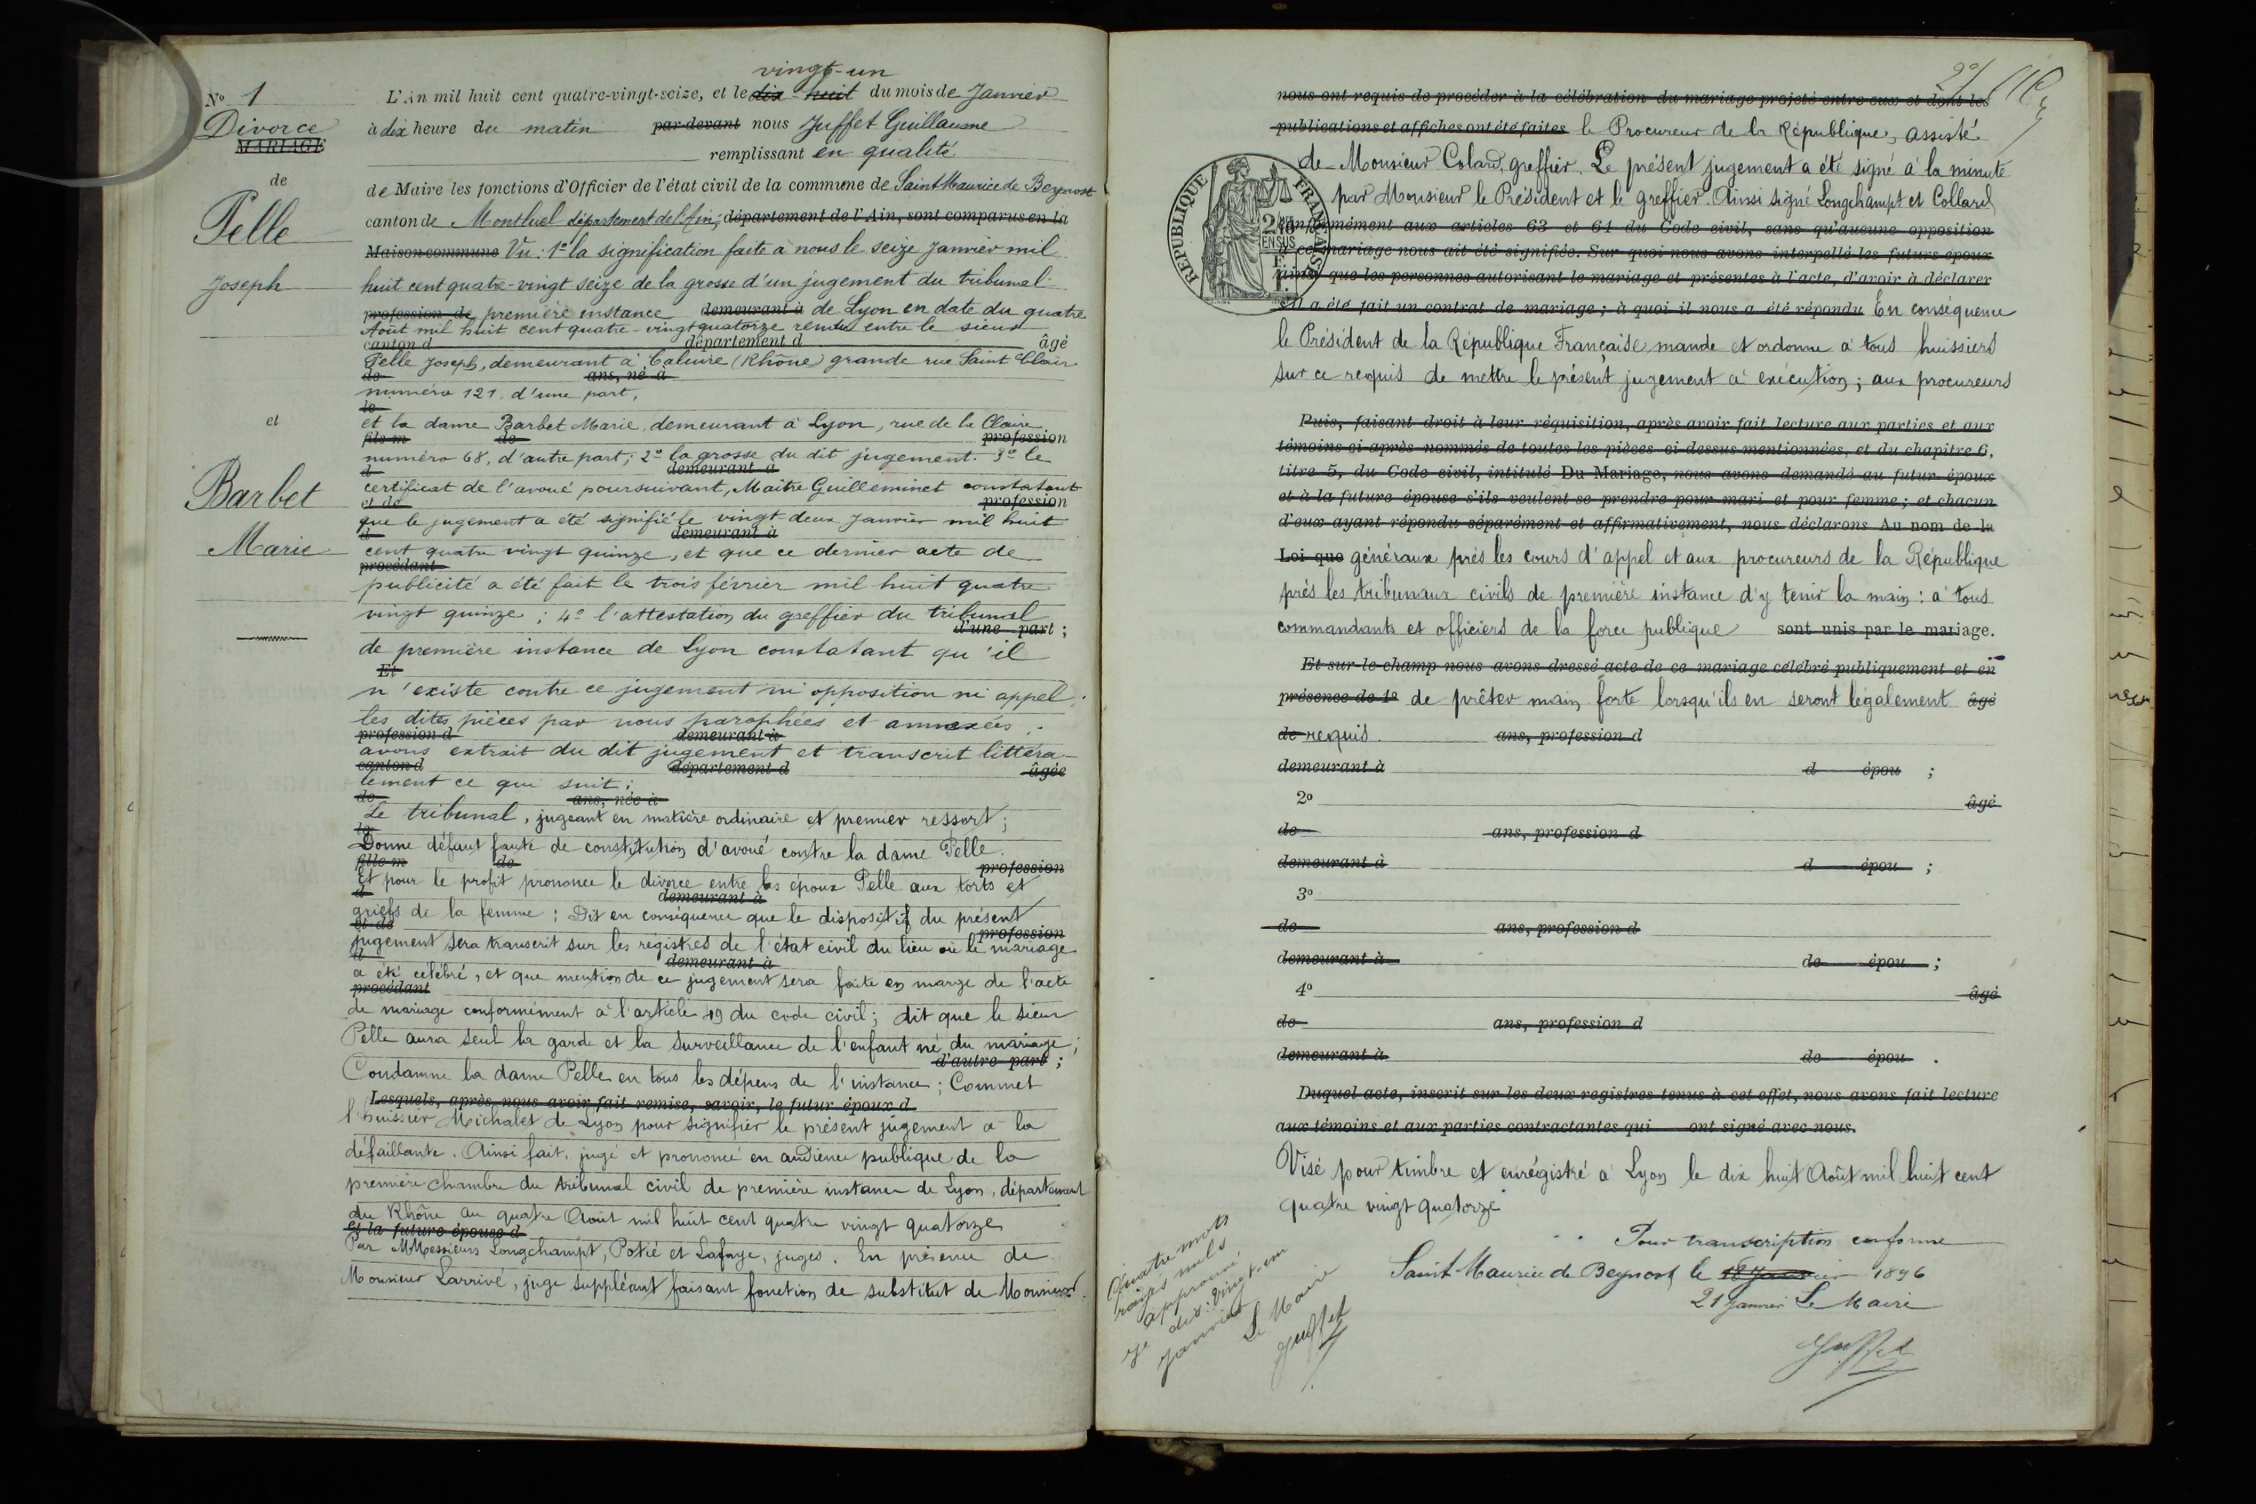 vingt-un
N° 1 L'An mil huit cent quatre-vingt-seize, et le dix-huit du mois de Janvier
Divorce à dix heure du matin par-devant nous Juffet Guillaume
MARIAGE remplissant en qualité
de de Maire les fonctions d'Officier de l'état civil de la commune de Saint Maurice de Beynost
Pelle canton de Montluel département de l'Ain, département de l'Ain, sont comparus en la
Maison commune Vu : 1° la signification faite à nous le seize Janvier mil
Joseph huit cent quatre-vingt seize de la grosse d'un jugement du tribunal
profession de première instance demeurant à de Lyon en date du quatre
Août mil huit cent quatre-vingt quatorze rendu entre le sieur
canton d département d âgé
Pelle Joseph, demeurant à Caluire (Rhône) grande rue Saint Clair
de ans, né à
numéro 121. d'une part,
le
et et la dame Barbet Marie, demeurant à Lyon, rue de la Claire
fils m de profession
numéro 68, d'autre part; 2° la grosse du dit jugement. 3° le
d demeurant à
Barbet certificat de l'avoué poursuivant, Maître Guilleminet constatant
et de profession
que le jugement a été signifié le vingt deux Janvier mil huit
d demeurant à
Marie cent quatre vingt quinze, et que ce dernier acte de
procédant
publicité a été fait le trois février mil huit quatre
vingt quinze ; 4° l'attestation du greffier du tribunal
d'une part ;
de première instance de Lyon constatant qu'il
Et
n'existe contre ce jugement ni opposition ni appel ;
les dites pièces par nous paraphées et annexées ;
profession d demeurant à
avons extrait du dit jugement et transcrit littéra-
canton d département d âgée
lement ce qui suit :
de ans, née à
Le tribunal, jugeant en matière ordinaire et premier ressort ;
la
Donne défaut faute de constitution d'avoué contre la dame Pelle.
fille m de profession
Et pour le profit prononce le divorce entre les époux Pelle aux torts et
d demeurant à
griefs de la femme ; Dit en conséquence que le dispositif du présent
et de profession
jugement sera transcrit sur les régistres de l'état civil du lieu où le mariage
d demeurant à
a été célébré, et que mention de ce jugement sera faite en marge de l'acte
procédant
de mariage conformément à l'article 49 du code civil ; dit que le sieur
Pelle aura seul la garde et la surveillance de l'enfant né du mariage ;
d'autre part ;
Condamne la dame Pelle en tous les dépens de l'instance ; Commet
Lesquels, après nous avoir fait remise, savoir, le futur époux d
l'huissier Michalet de Lyon pour signifier le présent jugement à la
défaillante. Ainsi fait, jugé et prononcé en audience publique de la
première chambre du tribunal civil de première instance de Lyon, département
du Rhône au quatre Août mil huit cent quatre vingt quatorze
et la future épouse d
Par MMessieurs Longchampt, Potié et Lafaye, juges. En présence de
Monsieur Larrivé, juge suppléant faisant fonction de substitut de Monsieur
2°/
nous ont requis de procéder à la célébration du mariage projeté entre eux et dont les
publications et affiches ont été faites le Procureur de la République, assisté
de Monsieur Colard, greffier. Le présent jugement a été signé à la minute
par Monsieur le Président et le greffier. Ainsi signé Longchampt et Collard
RÉPUBLIQUE FRANÇAISE
conformément aux articles 63 et 64 du Code civil, sans qu'aucune opposition
à ce mariage nous ait été signifiée. Sur quoi nous avons interpellé les futurs époux
ainsi que les personnes autorisant le mariage et présentes à l'acte, d'avoir à déclarer
s'il a été fait un contrat de mariage ; à quoi il nous a été répondu En conséquence
le Président de la République Française mande et ordonne à tous huissiers
sur ce requis de mettre le présent jugement à exécution ; aux procureurs
Puis, faisant droit à leur réquisition, après avoir fait lecture aux parties et aux
témoins ci-après nommés de toutes les pièces ci-dessus mentionnées, et du chapitre 6,
titre 5, du Code civil, intitulé Du Mariage, nous avons demandé au futur époux
et à la future épouse s'ils veulent se prendre pour mari et pour femme ; et chacun
d'eux ayant répondu séparément et affirmativement, nous déclarons Au nom de la
Loi que généraux près les cours d'appel et aux procureurs de la République
près les tribunaux civils de première instance d'y tenir la main : à tous
commandants et officiers de la force publique sont unis par le mariage.
Et sur-le-champ nous avons dressé acte de ce mariage célébré publiquement et en
présence de 1° de prêter main forte lorsqu'ils en seront légalement âgé
de requis. ans, profession d
demeurant à d épou ;
2° âgé
de ans, profession d
demeurant à d épou ;
3°
de ans, profession d
demeurant à de épou ;
4° âgé
de ans, profession d
demeurant à de épou .
Duquel acte, inscrit sur les deux registres tenus à cet effet, nous avons fait lecture
aux témoins et aux parties contractantes qui ont signé avec nous.
Visé pour timbre et enrégistré à Lyon le dix huit Août mil huit cent
quatre vingt quatorze
Pour transcription conforme
Saint-Maurice de Beynost le 18 Janvier 1896
21 Janvier Le Maire
Juffet
Quatre mots
rayés nuls
approuvé
Je dis : vingt-un
Janvier
Le Maire
Juffet